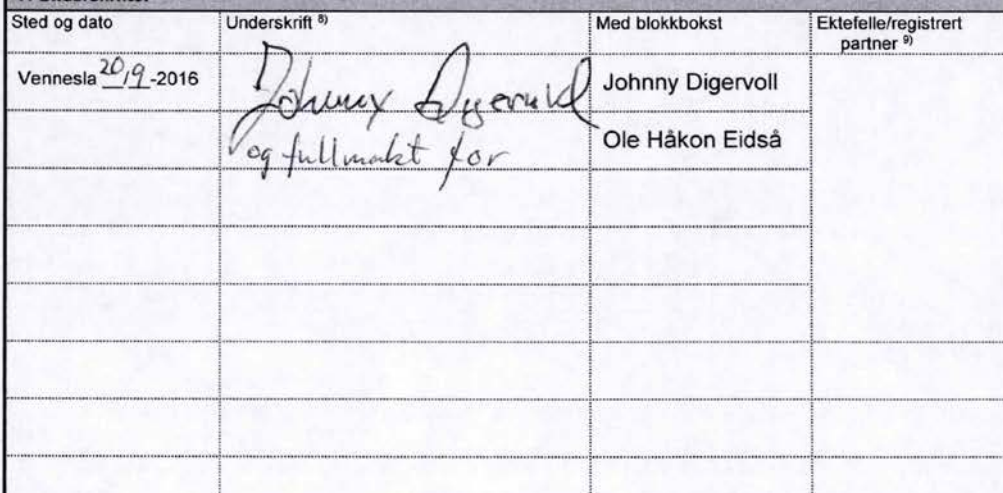 Sted og dato Underskrift 8) Med blokkbokst Ektefelle/registrert
partner 9)
Vennesla 20/9-2016 Johnny Digervoll Johnny Digervoll
og fullmakt for Ole Håkon Eidså